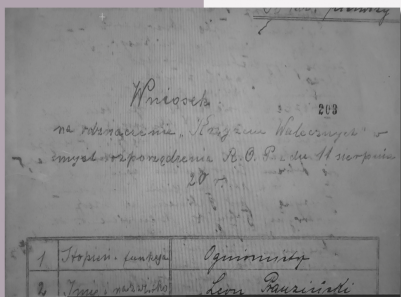 203
Wniosek
na odznaczenie „Krzyżem Walecznych" w
myśl rozporządzenia R. O. P. z dn. 11 sierpnia
20 r.
1 Stopień i funkcja Ogniomistrz
2 Imię i nazwisko Leon